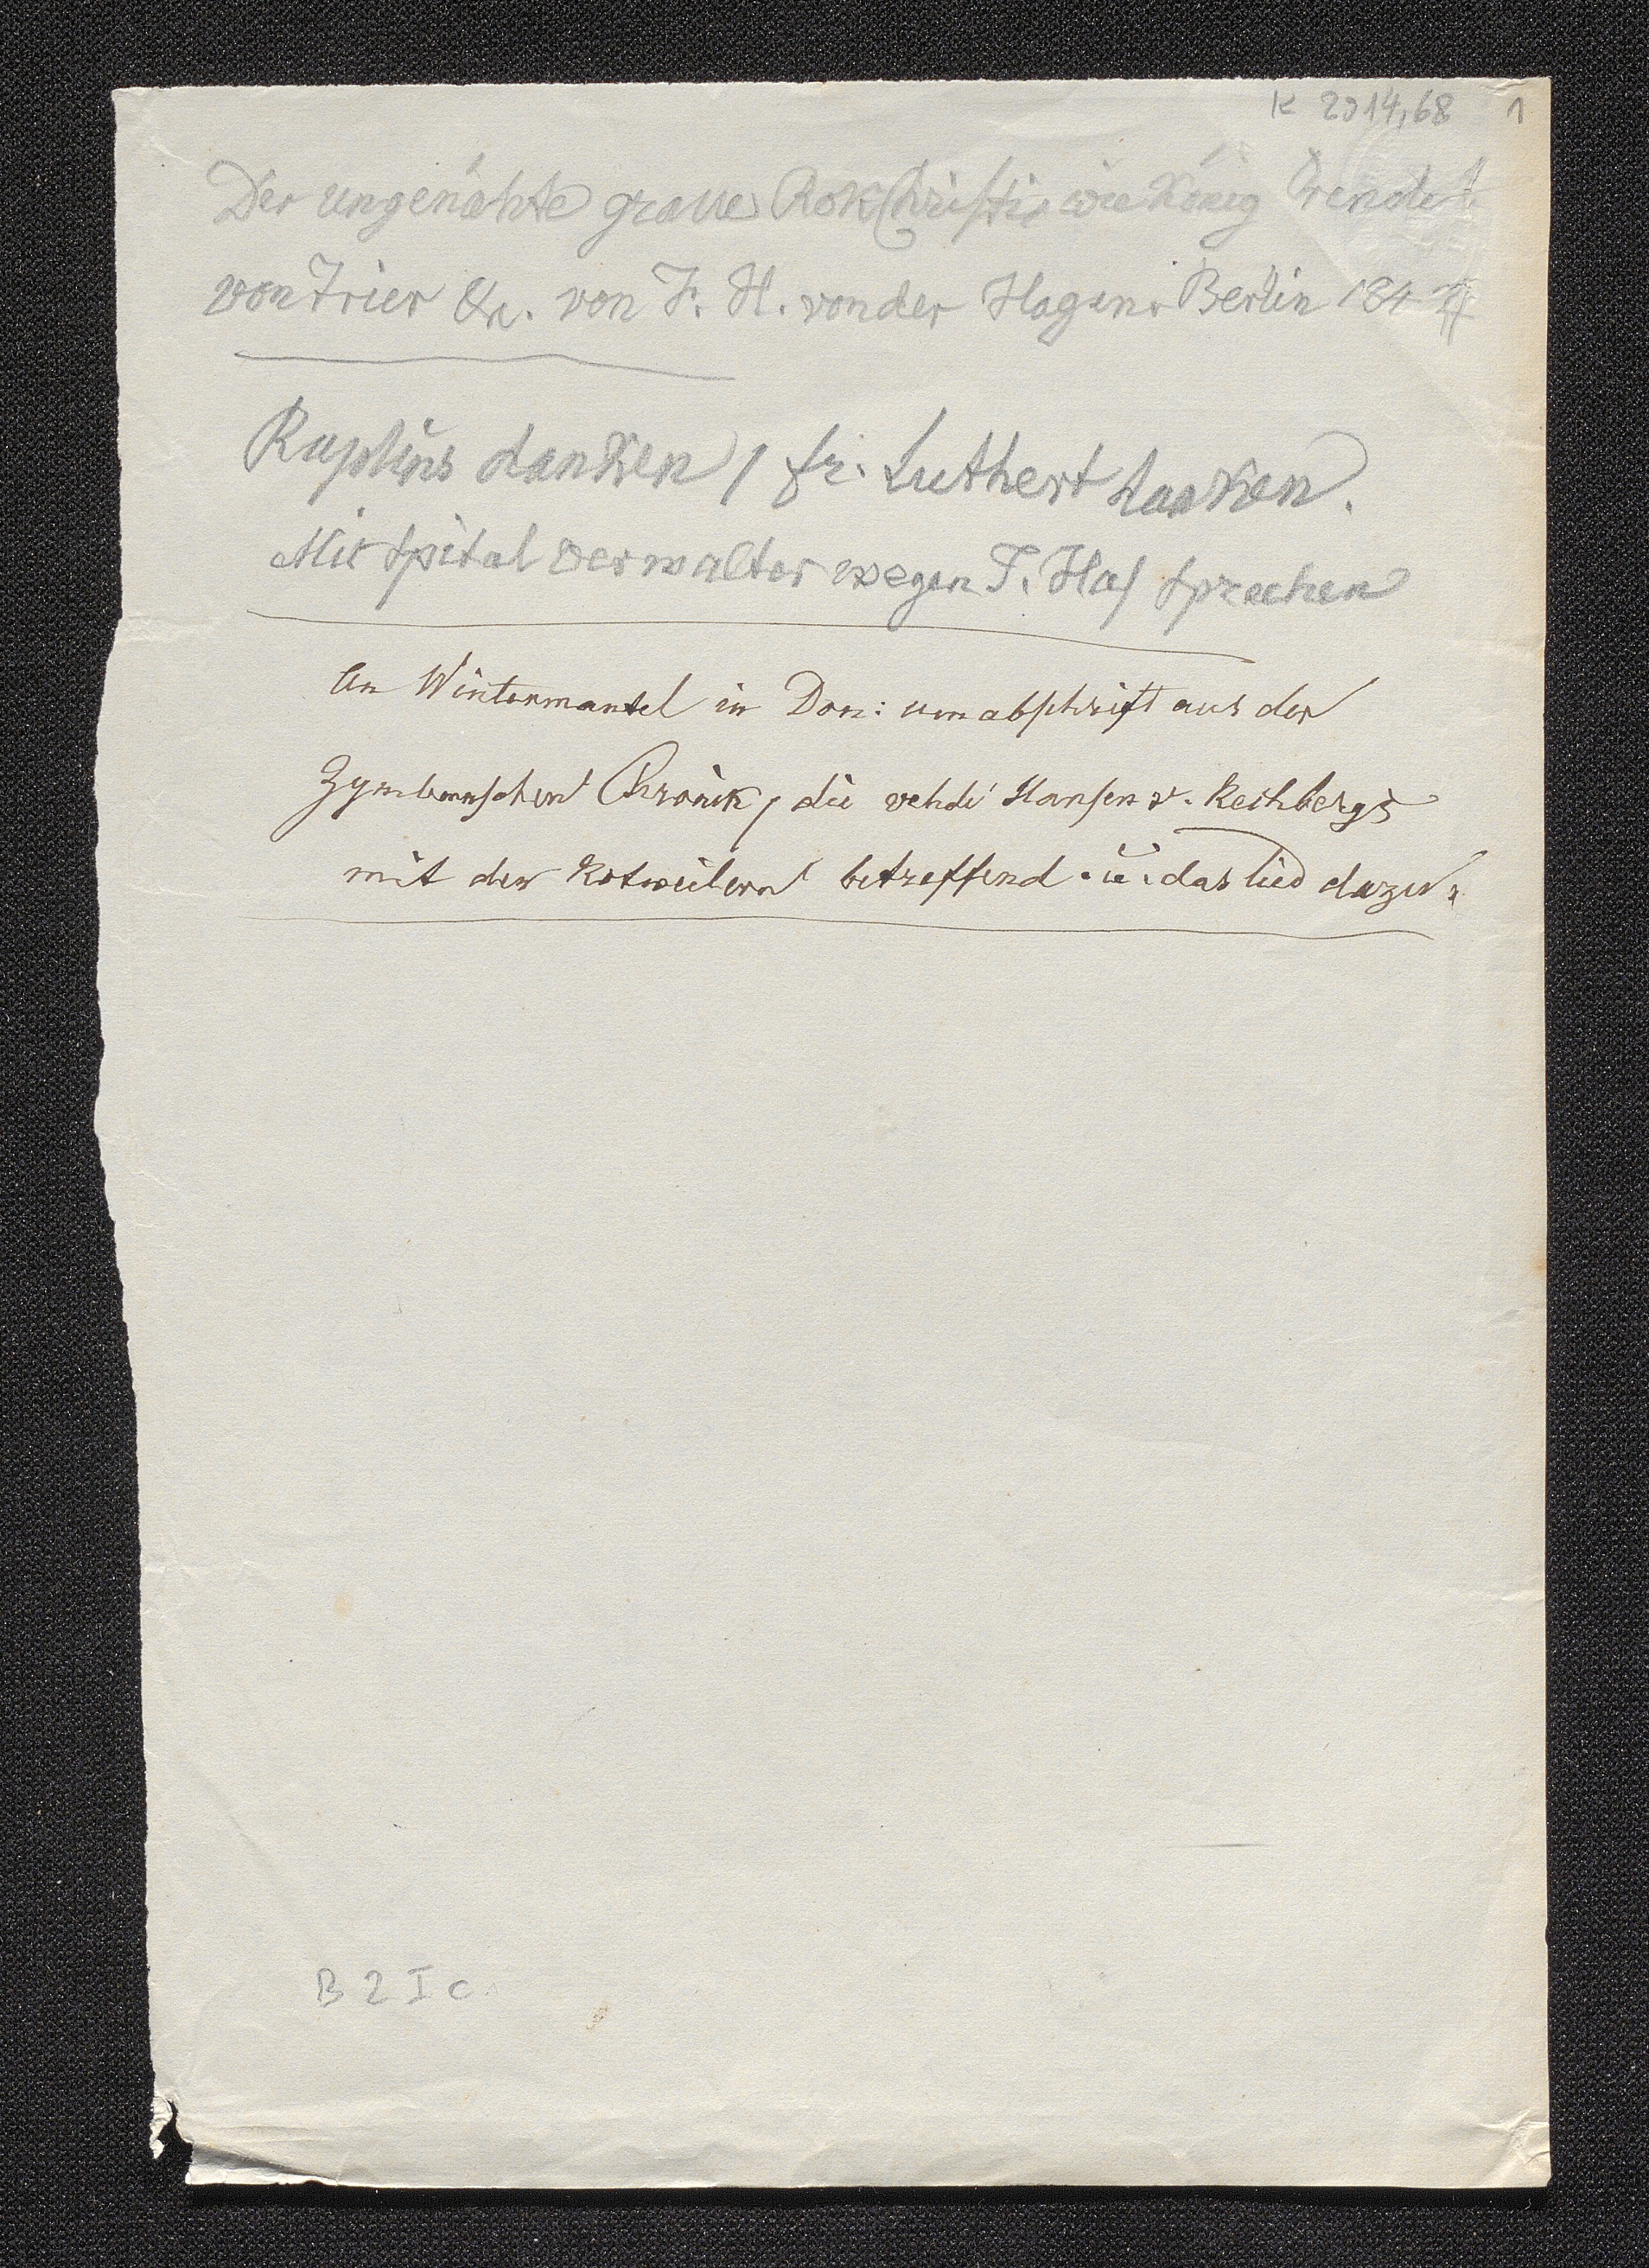 K 2014,68 1
Der ungenähte graue Rok Christi, wie König Orendel
von Trier &c. von F. H. von der Hagen. Berlin 184
danken / fr. Luthert danken.
Mit Spitalverwalter wegen F. Has sprechen
An Wintermantel in Don: um abschrift aus der
Zymbernschen Chronik, die vehde Hansen v. Rechbergs
mit den Rotweilern betreffend. u. das lied dazu.
B 2 I c